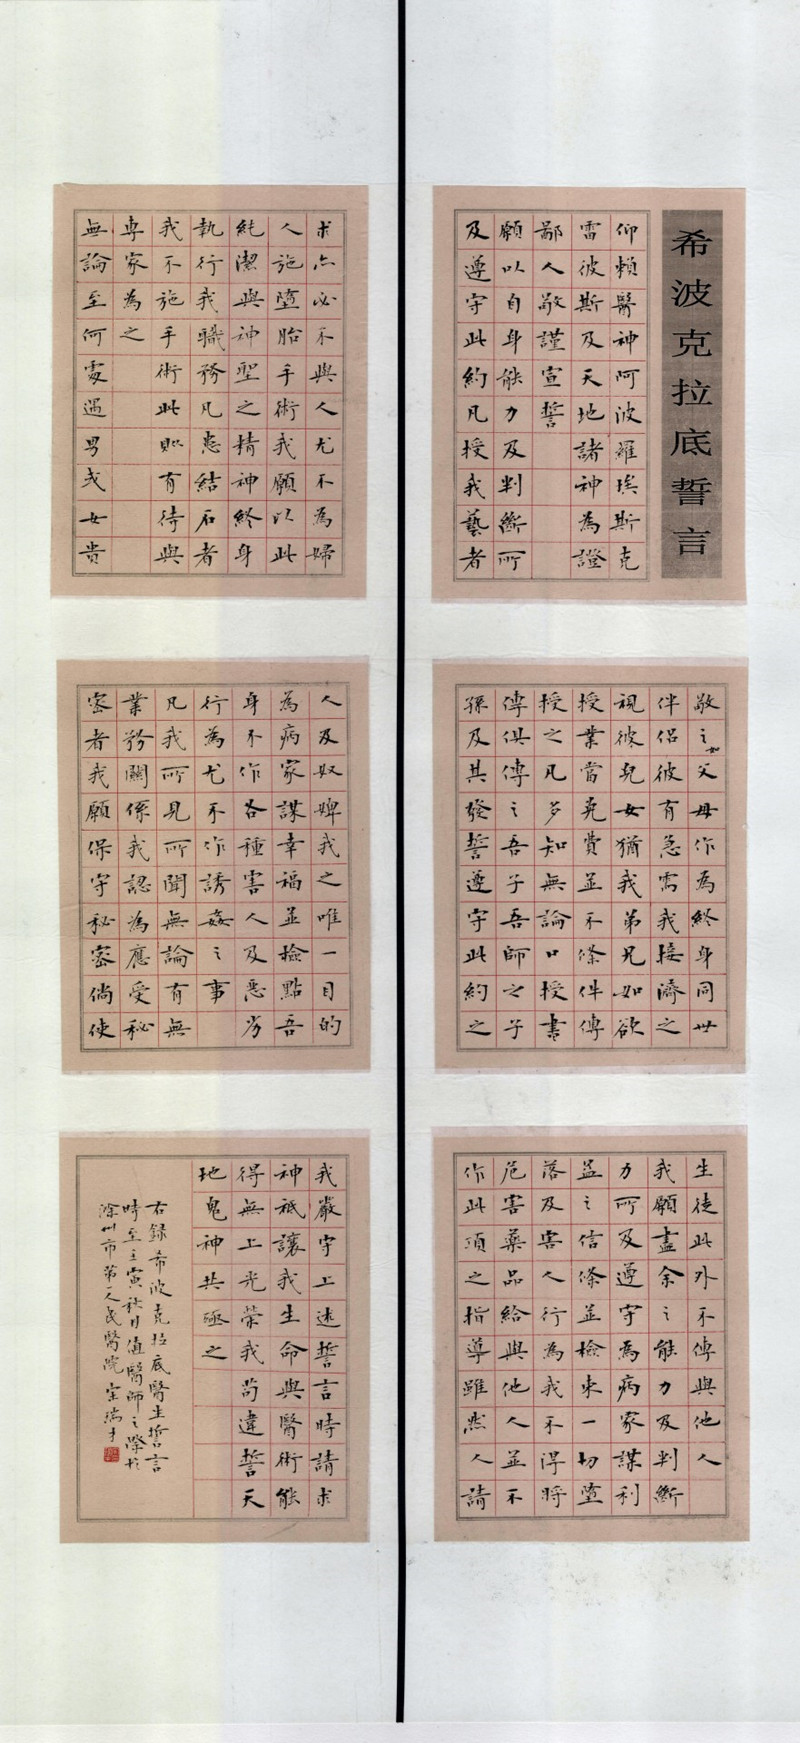 希波克拉底誓言
仰賴醫神阿波羅埃斯克
雷彼斯及天地諸神為證
鄙人敬謹宣誓
願以自身能力及判斷所
及遵守此約凡授我藝者
敬之如父母作為終身同世
伴侶彼有急需我接濟之
視彼兒女猶我弟兄如欲
授業當免費並不條件傳
授之凡多知無論口授書
傳俱傳之吾子吾師之子
孫及其發誓遵守此約之
生徒此外不傳與他人
我願盡余之能力及判斷
力所及遵守為病家謀利
益之信條並檢束一切墮
落及害人行為我不得將
危害藥品給與他人並不
作此項之指導雖然人請
求亦必不與人尤不為婦
人施墮胎手術我願以此
純潔與神聖之精神終身
執行我職務凡患結石者
我不施手術此則有待與
專家為之
無論至何處遇男或女貴
人及奴婢我之唯一目的
為病家謀幸福並檢點吾
身不作各種害人及惡劣
行為尤不作誘姦之事
凡我所見所聞無論有無
業務關係我認為應受秘
密者我願保守秘密倘使
我嚴守上述誓言時請求
神祇讓我生命與醫術能
得無上光榮我苟違誓天
地鬼神共殛之
右錄希波克拉底醫生誓言
時至壬寅秋月值醫師之際於
滁州市第一人民醫院